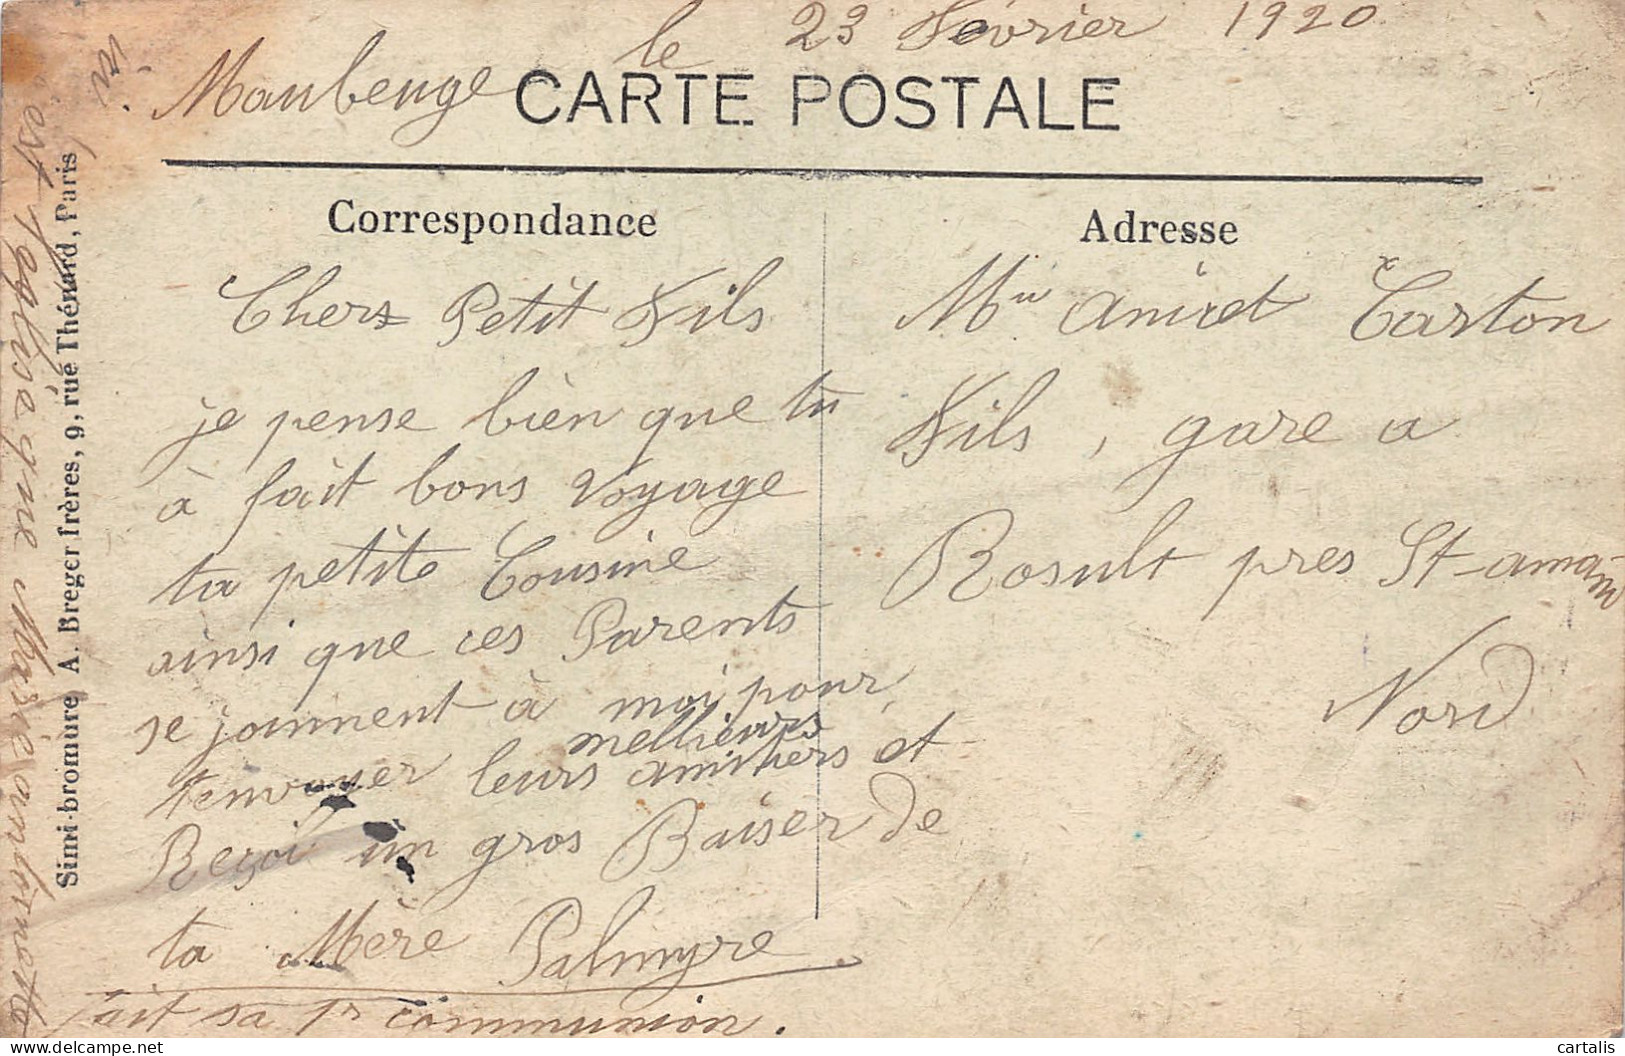 Maubeuge le 23 Février 1920
CARTE POSTALE
Correspondance
Chers Petit Fils
je pense bièn que tu
à fait bons Voyage
ta petite Cousine
ainsi que ces Parents
se joinnent à moi pour
mellieurs
tenvoyer leurs amitiers et
Reçoit un gros Baiser de
ta Mère Palmyre
fait sa 1r communion.
Adresse
Mr Carton
Fils, gare a
Rosult pres St-amand
Nord
est
que Marie
Simi-bromure A. Breger frères, 9, rue Thénard, Paris
cartalis